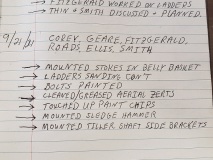 → FITZGERALD WORKED ON LADDERS
→ THIN + SMITH DISCUSSED + PLANNED.
9/21/21 COREY, GEARE, FITZGERALD,
ROADS, ELLIS, SMITH
→ MOUNTED STOKES IN BELLY BASKET
→ LADDERS SANDING CON'T
→ BOLTS PAINTED
→ CLEANED/GREASED AERIAL ZERTS
→ TOUCHED UP PAINT CHIPS
→ MOUNTED SLEDGE HAMMER
→ MOUNTED TILLER SHAFT SIDE BRACKETS